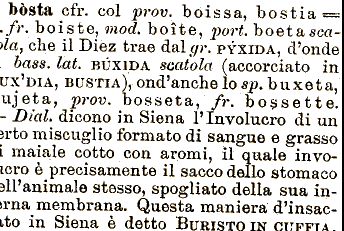 bòsta cfr. col prov. boissa, bostia =
. fr. boiste, mod. boîte, port. boeta sca-
ola, che il Diez trae dal gr. PÝXIDA, d'onde
bass. lat. BÚXIDA scatola (accorciato in
UX'DIA, BUSTIA), ond'anche lo sp. buxeta,
ujeta, prov. bosseta, fr. bossette.
- Dial. dicono in Siena l'Involucro di un
erto miscuglio formato di sangue e grasso
i maiale cotto con aromi, il quale invo-
ucro è precisamente il sacco dello stomaco
ell'animale stesso, spogliato della sua in-
erna membrana. Questa maniera d'insac-
ato in Siena è detto BURISTO IN CUFFIA.